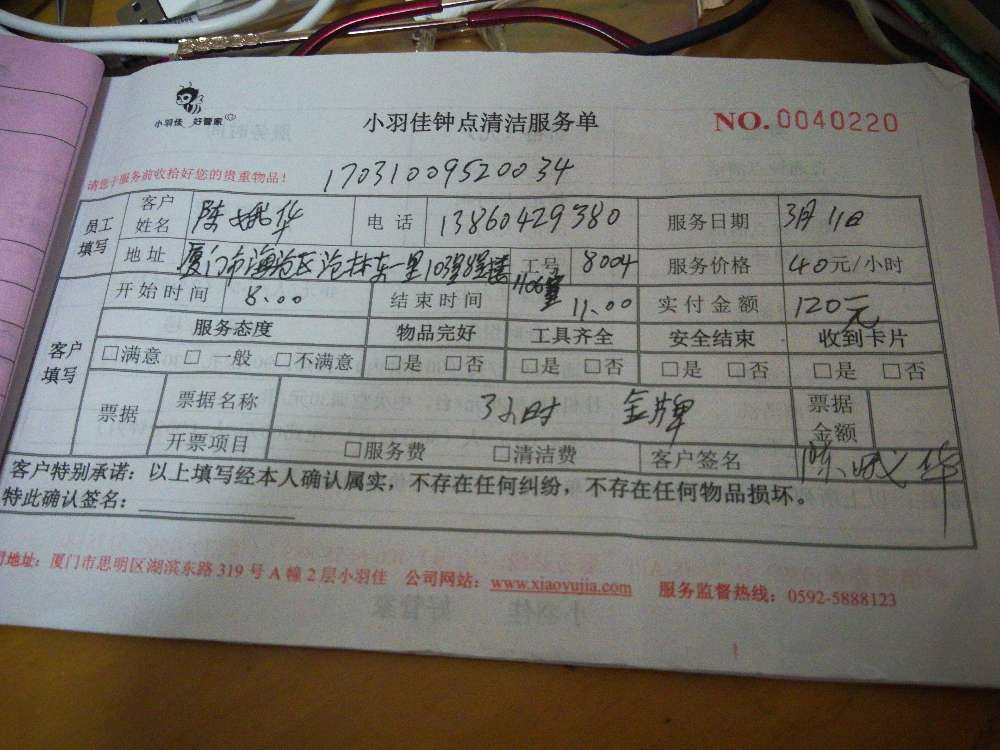 小羽佳 好管家
小羽佳钟点清洁服务单
NO.0040220
请您于服务前收拾好您的贵重物品!
1703100952003​4
员工填写 客户姓名 陈 华 电话 13860429380 服务日期 3月11日
地址 厦门市海沧区沧林东一里 1106室 工号 8004 服务价格 40元/小时
客户填写 开始时间 8.00 结束时间 11.00 实付金额 120元
服务态度 物品完好 工具齐全 安全结束 收到卡片
□满意 □一般 □不满意 □是 □否 □是 □否 □是 □否 □是 □否
票据 票据名称 3小时 金牌 票据金额
开票项目 □服务费 □清洁费 客户签名
客户特别承诺:以上填写经本人确认属实,不存在任何纠纷,不存在任何物品损坏。
特此确认签名:
地址:厦门市思明区湖滨东路319号A幢2层小羽佳 公司网站:www.xiaoyujia.com 服务监督热线:0592-5888123